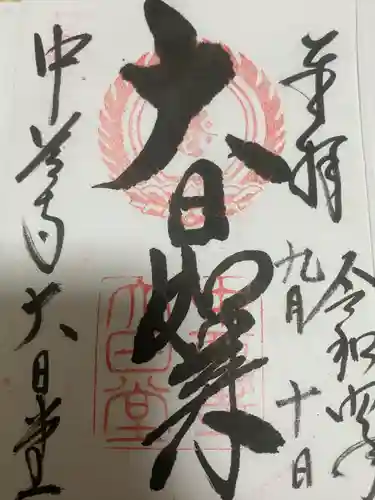 奉拝
令和四年
九月十日
大日如来
中尊寺大日堂
大日堂